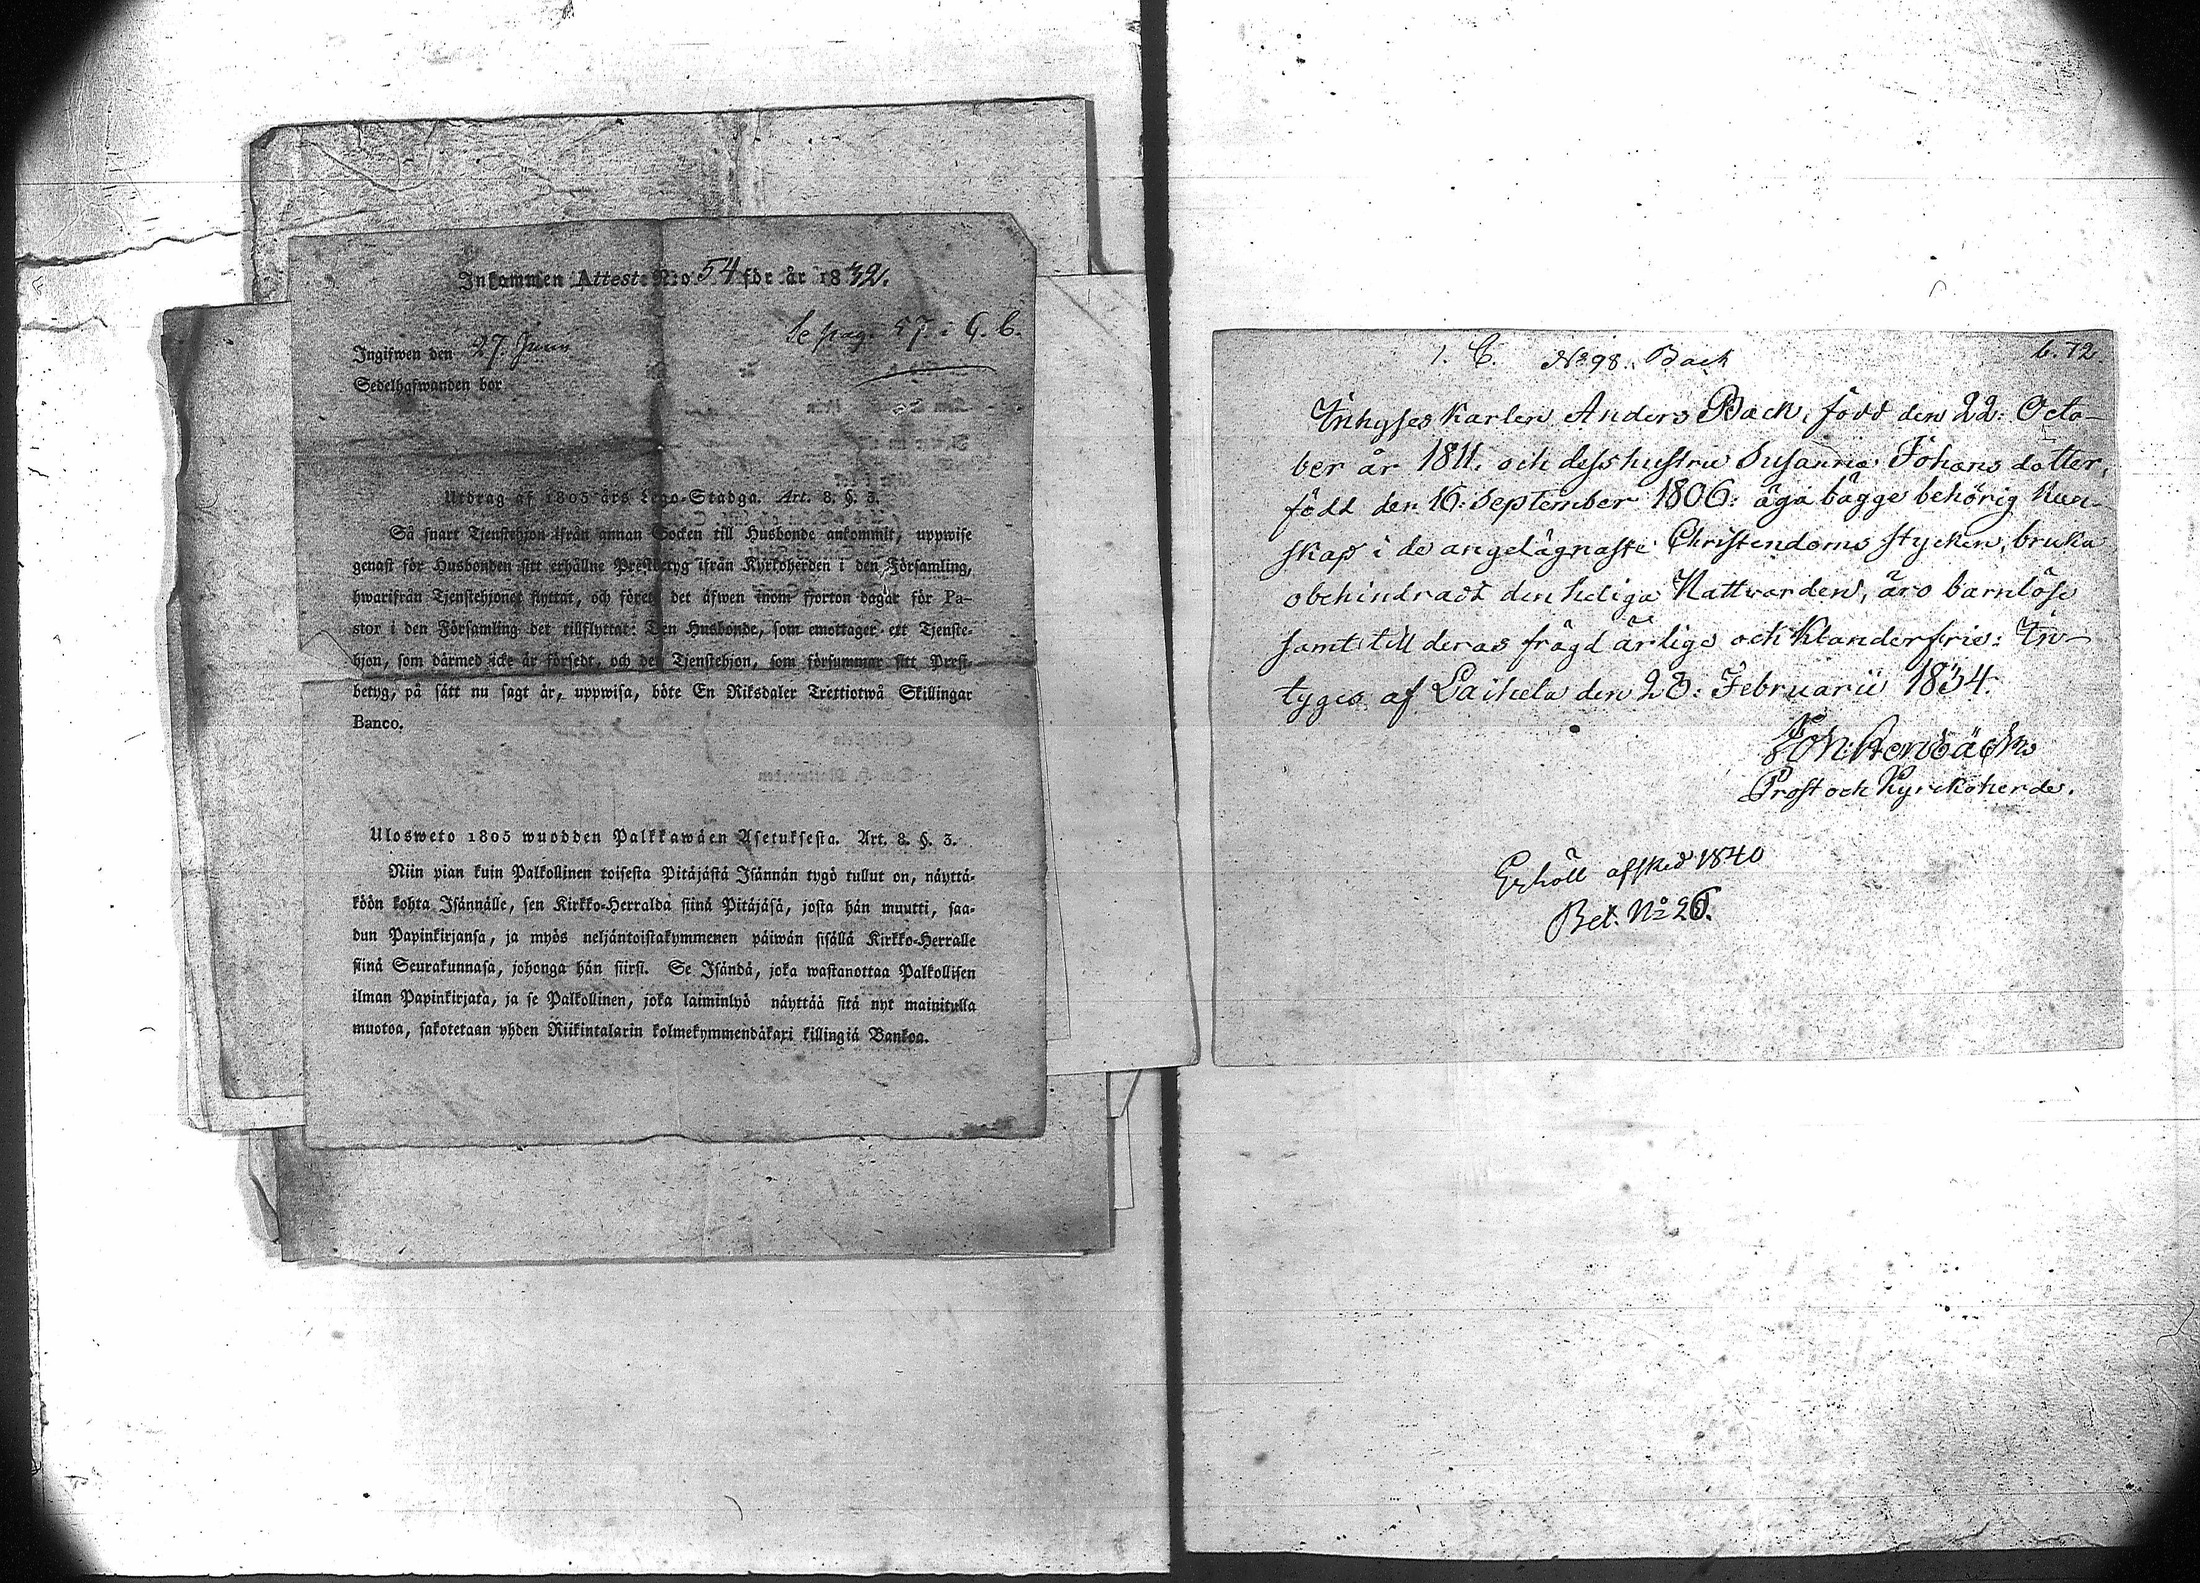 Inkommen Attest N:o 54 för år 1832.
Se pag. 57. i C. b.
Ingifwen den 27. Junii
Sedelhafwanden bor
Utdrag af 1805 års Lego-Stadga. Art. 8. §. 3.
Så snart Tjenstehjon ifrån annan Socken till Husbonde ankommit, uppwise
genast för Husbonden sitt erhållne Prestbetyg ifrån Kyrkoherden i den Församling,
hwarifrån Tjenstehjonet flyttat, och förete det äfwen inom fjorton dagar för Pa-
stor i den Församling det tillflyttat: Den Husbonde, som emottager ett Tjenste-
hjon, som därmed icke är försedt, och det Tjenstehjon, som försummar sitt Prest-
betyg, på sätt nu sagt är, uppwisa, böte En Riksdaler Trettiotwå Skillingar
Banco.
Ulosweto 1805 wuodden Palkkawäen Asetuksesta. Art. 8. §. 3.
Niin pian kuin Palkollinen toisesta Pitäjästä Isännän tygö tullut on, näyttä-
köön kohta Isännälle, sen Kirkko-Herralda siinä Pitäjäsä, josta hän muutti, saa-
dun Papinkirjansa, ja myös neljäntoistakymmenen päiwän sisällä Kirkko-Herralle
siinä Seurakunnasa, johonga hän siirsi. Se Isändä, joka wastanottaa Palkollisen
ilman Papinkirjata, ja se Palkollinen, joka laiminlyö näyttää sitä nyt mainitulla
muotoa, sakotetaan yhden Riikintalarin kolmekymmendäkaxi killingiä Bankoa.
1. C. No 98. Back b. 72.
Inhyses karlen Anders Back, född den 22: Octo-
ber år 1811. och dess hustru Susanna Johans dotter,
född den 16. September 1806: äga bägge behörig kun-
skap i de angelägnaste Christendoms stycken, bruka
obehindradt den heliga Nattvarden, äro barnlöse
samt till deras frägd ärlige och klanderfrie: In-
tygas af Laihela den 23: Februarii 1834.
Joh: Kerbäck
Prost och Kyrckoherde.
Erhöll afsked 1840
Bet. No 26.